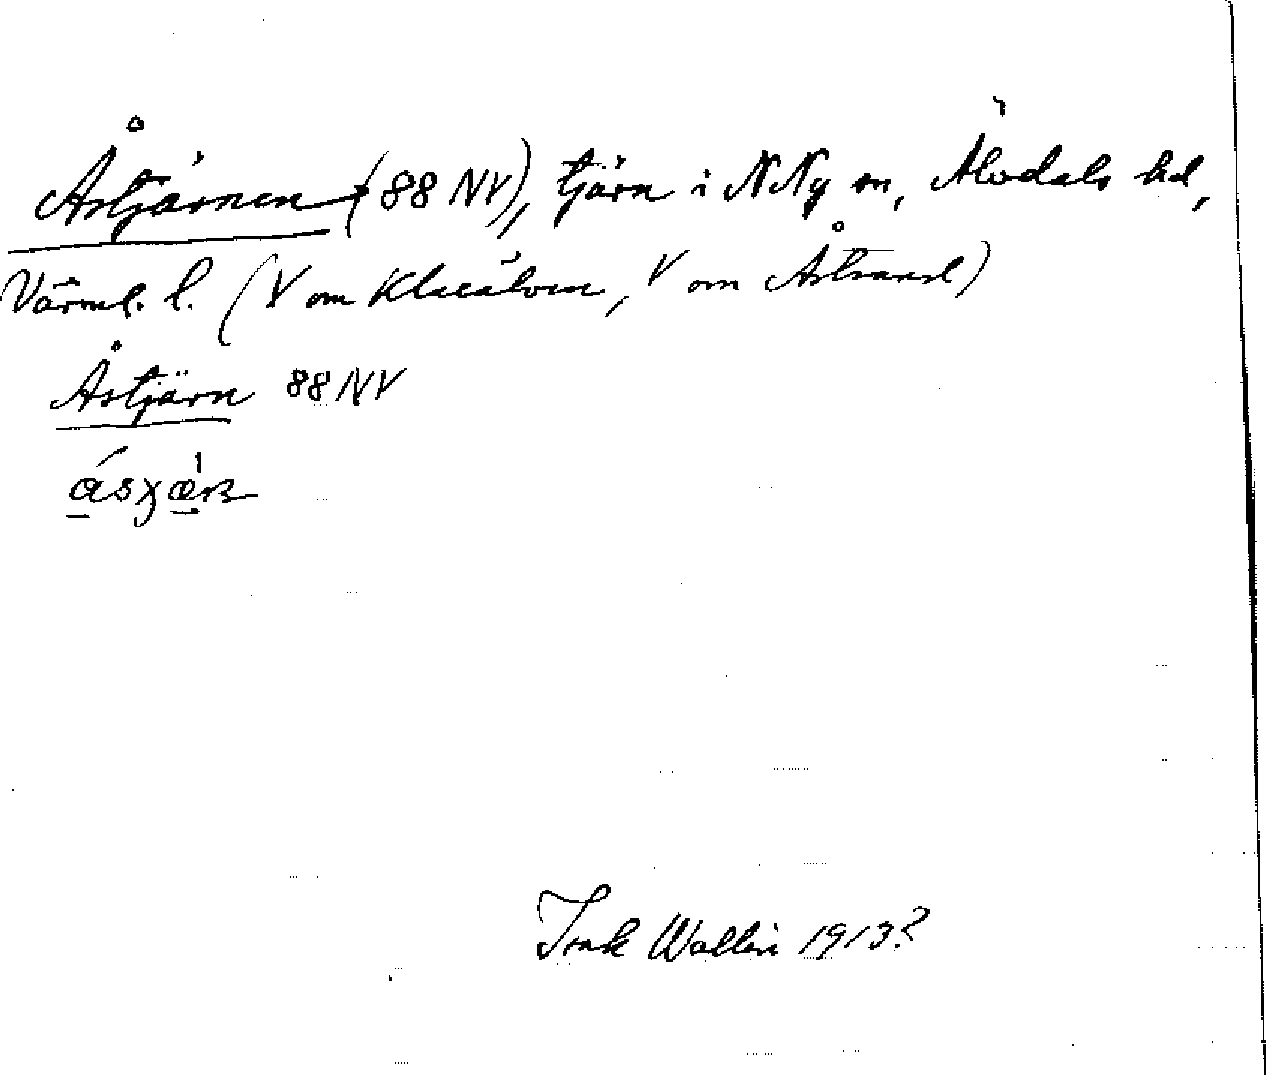 Åstjärnen (88 NV), tjärn i N Ny sn, Älvdals hd,
Värml. l. (V om Klarälven, V om Åstrand)
Åstjärn 88 NV
Isak Wallin 1913?